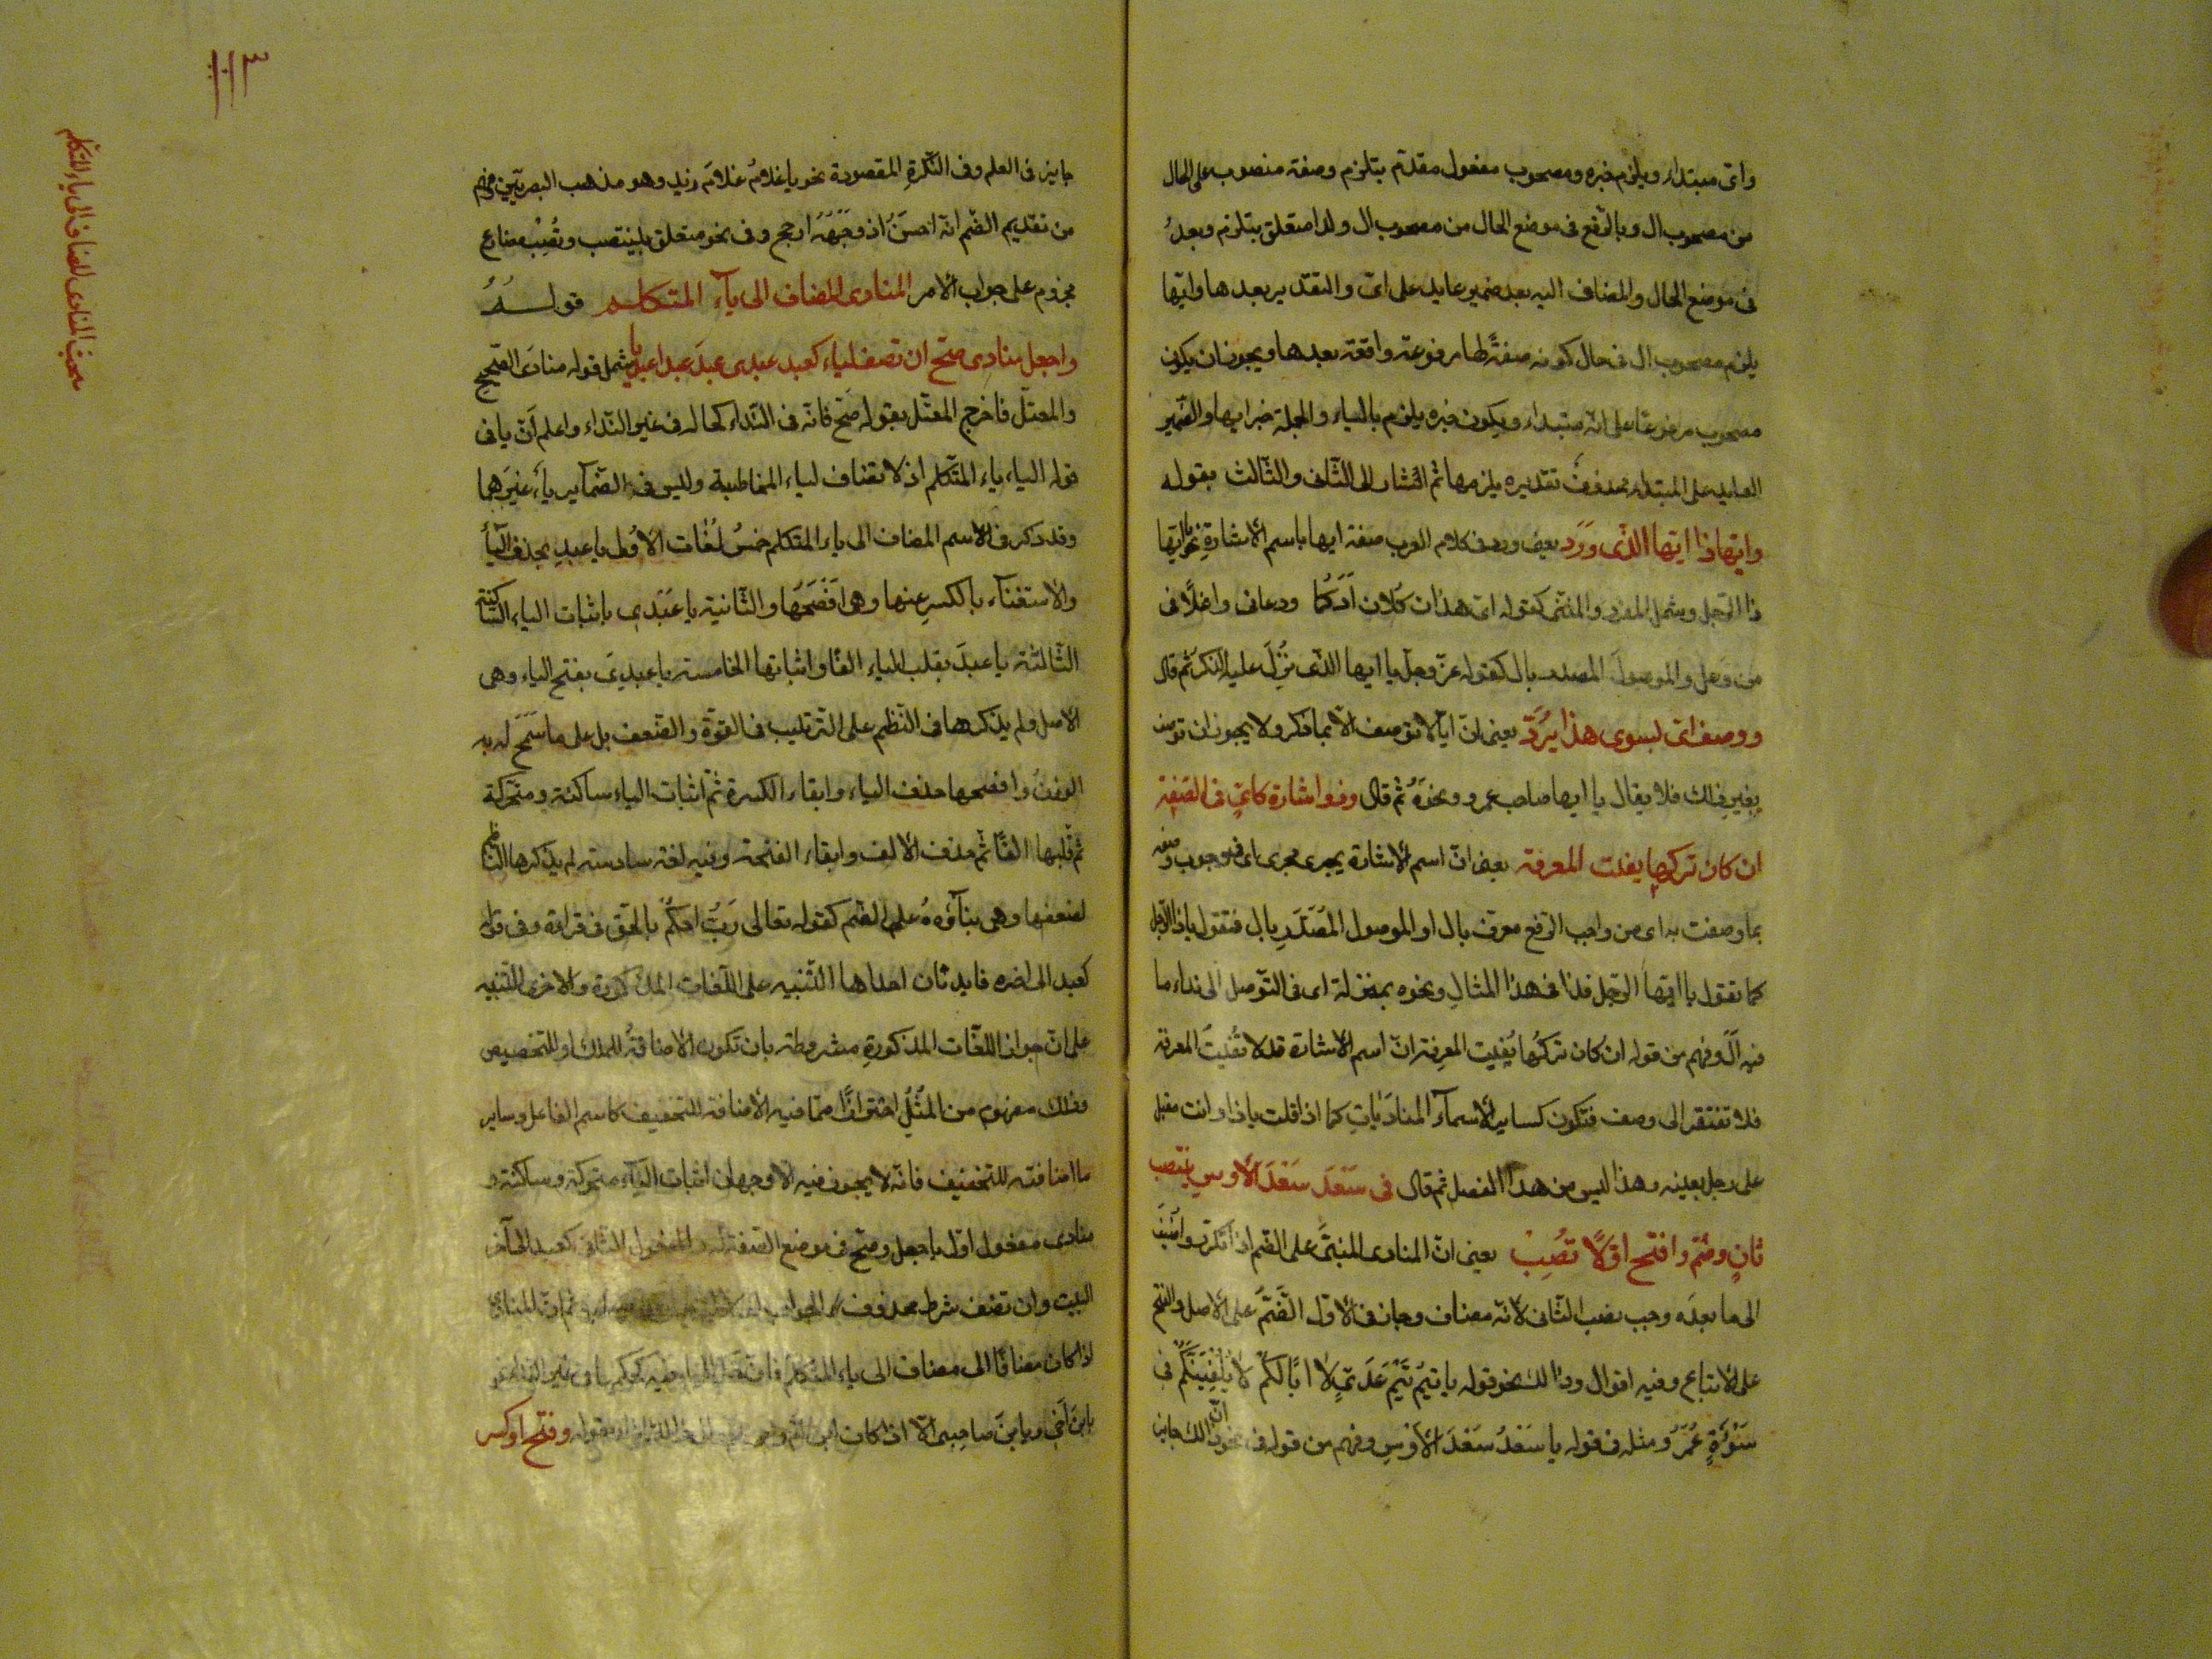 واى مبتداء ويلزم خبره ومصحوب مفعول مقدّم بتلزم وصفة منصوب على الحال
من مصحوب ال وبالرّفع فى موضع الحال من مصحوب ال ولدا متعلق بتلزم وبعدُ
فى موضع الحال والمضاف اليه بعد ضمير عايد على اىّ والتقدير بعدها وايّها
يلزم مصحوب ال فى حال كونه صفةً لها مرفوعة واقعة بعدها ويجوز ان يكون
مصحوب مرفوعًا على انّه مبتداء ويكون خبره يلزم بالياء والجملة خبر ايها والضّمير
العايد على المبتداء محذوفٌ تقديره يلزمها ثم اشار الى الثّانى والثّالث بقوله
وايّهاذا ايّها الذّى وَرَد يعنى ورد فى كلام العرب صفة ايها باسم الاشارةِ نحو يا ايّها
ذا الرّجل وشمل المفرد والمثنّى كقوله اىّ هذان كُلان ادَكُما ودعانى واغلًا فى
من وغل والموصولَ المصدر بال كقوله عزّ وجلّ يا ايها الذّى نُزِّلَ عليه الذّكر ثم قال
ووصف اىّ بسوى هذا يُرَدّ يعنى انّ ايّا لا توصف الاّ بما ذكر ولا يجوز ان توصف
بغير ذلك فلا يقال يا ايها صاحب عمرو ونحوَهُ ثم قال وذو اشارة كاىّ فى الصّفة
ان كان تركها يفيت المعرفة يعنى انّ اسم الاشارة يجرى مجرى اى فى وجوب وصفه
بما وصفت به اى من واجب الرّفع معرّف بال او الموصول المُصَدَّرِ بال فتقول ياذا الرّجل
كما تقول يا ايّها الرّجل فذا فى هذا المثالِ ونحوه بمنزلة اى فى التّوصل الى نداء ما
فيه الْ وفهم من قوله ان كان تركُها يُفِيت المعرفة انّ اسم الاشارة قد لا تُفيتُ المعرفة
فلا تفتقر الى وصف فتكون كساير الاسمآء المنادَيات كما اذا قلت ياذا وانت مقبل
على رجل بعينه وهذا ليس من هذا الفصل ثم قال فى سَعْدَ سَعْدَ الأوسِ ينتصب
ثانٍ وضُمّ وافتح اوّلًا تُصِبْ يعنى انّ المنادى المبنىَّ على الضّم اذا تكرّر واُضيف
الى ما بعدَه وجب نصب الثّانى لانّه مضاف وجاز فى الاوّل الضّمّ على الاصل والفتح
على الاتباع وفيه اقوال وذالك نحو قوله يا تيمُ تَيْمَ عَدىٍّ لا ابًا لكمْ لا يُلْفِيَنَّكمُ فى
سَوْءَةٍ عُمَرُ ومثله فى قوله يا سَعْدُ سَعْدَ الأوْسِ وفهم من قوله فى نحو انّ ذالك جايز
جايز فى العلم وفى النّكرةِ المقصودة نحو يا غلامُ غلامَ زيد وهو مذهب البصريّين وفهم
من تقديم الضّم انّه احسَنُ اذ وَجْهُهُ ارجح وفى نحو متعلق بينتصب وتُصِبْ مضارع
مجزوم على جواب الامر المنادى المضاف الى يآء المتكلم قولــهُ
واجعل منادى صحّ ان تضف لياء كعبد عبدى عبدَ عبدا عبديا يشمل قوله منادى الصّحيح
والمعتلّ فاخرج المعتّل بقوله صَحّ فانّه فى النّداء كحاله فى غير النّداء واعلم اَنّ يا فى
قوله الياء ياء المتكلم اذ لا تضاف لياء المخاطبة وليس فى الضّمآير ياءٌ غيرَهما
وقد ذكر فى الاسم المضاف الى ياء المتكلم خمسُ لُغات الاولى يا عبدِ بحذف اليأ
والاستغنآء بالكسرِ عنها وهى افْصَحُها والثّانية يا عَبْدى باثبات الياء السّاكنة
الثّالثة يا عبدَ بقلب الياء الفًا واثباتها الخامسة يا عبدِىَ بفتح الياء وهى
الاصل ولم يذكرها فى النّظم على التّرتيب فى القوّة والضّعف بل على ما سَمَحَ له به
الوزنُ وافصحها حذف الياء وابقاء الكسرة ثم اثبات الياء ساكنة ومتحرّكة
ثم قلبها الفًا ثم حذف الالف وابقاء الفتحة وفيه لغة سادسة لم يذكرها النّاظم
لضعفها وهى بنآؤُهُ على الضّم كقوله تعالى رَبُّ احكُمْ بالحقّ فى قراءة وفى قوله
كعبد الى اخره فايدتان احداها التّنبيه على اللّغات المذكورة والاخرى للتّنبيه
على انّ جواز اللّغات المذكورةِ مشروطة بان تكون الاضافةُ للملك او للتخصيص
وذلك مفهوم من المُثُلِ احترازًا ممّا فيه الاضافة للتخفيف كاسم الفاعل وساير
ما اضافته للتخفيف فانّه لا يجوز فيه الاّ وجهان اثبات اليآء متحركة وساكنة و
منادى مفعول اوّل باجعل وصحّ فى موضع الصّفة له والمفعول الثّانى كعبد الى آخر
البيت وان تضف شرط محذوف الجواب ثم انّ المنادى
اذا كان مضافًا الى مضاف الى ياء المتكلم فى غير النّداء نحو
يا ابنَ اَخى ويا ابنَ صاحبى الاّ اذا كان ابن امّ بقوله وفتح او كسر
مبحث المنادى المضاف الى ياء المتكلم